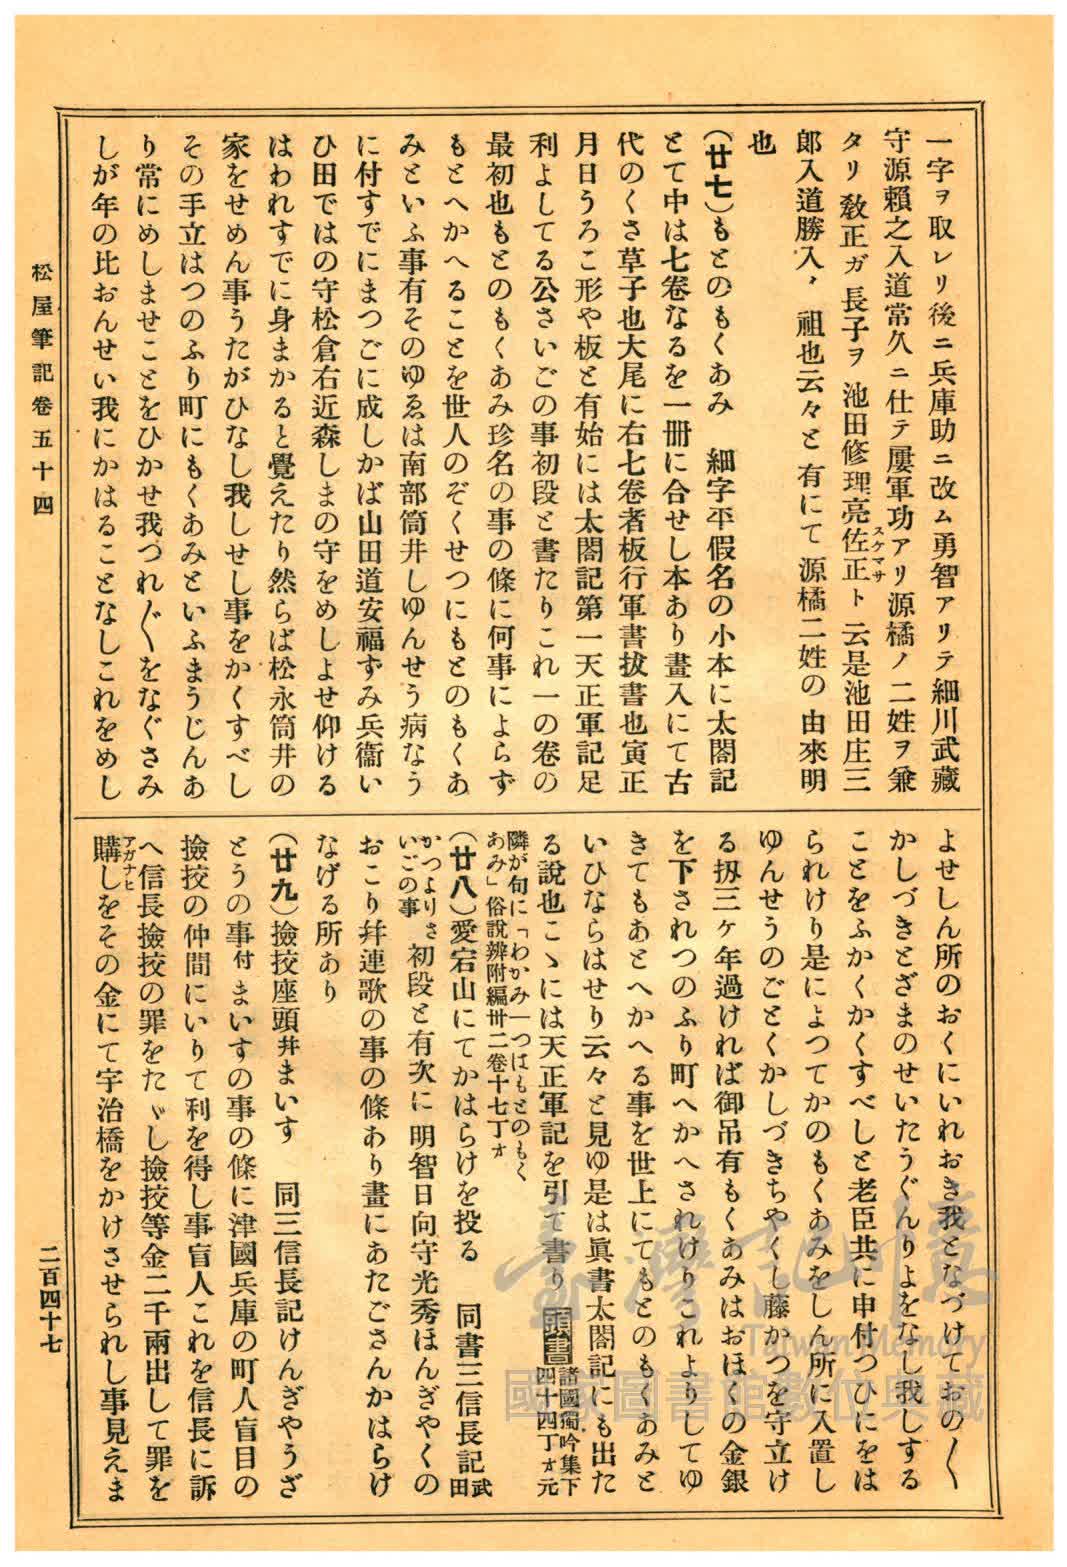 一字ヲ取レリ後ニ兵庫助ニ改ム勇智アリテ細川武藏
守源賴之入道常久ニ仕テ屢軍功アリ源橘ノ二姓ヲ兼
タリ教正ガ長子ヲ池田修理亮佐正スケマサト云是池田庄三
郎入道勝入ノ祖也云々と有にて源橘二姓の由來明
也
(廿七)もとのもくあみ　細字平假名の小本に太閤記
とて中は七卷なるを一冊に合せし本あり畫入にて古
代のくさ草子也大尾に右七卷者板行軍書拔書也寅正
月日うろこ形や板と有始には太閤記第一天正軍記足
利よしてる公さいごの事初段と書たりこれ一の卷の
最初也もとのもくあみ珍名の事の條に何事によらず
もとへかへることを世人のぞくせつにもとのもくあ
みといふ事有そのゆゑは南部筒井しゆんせう病なう
に付すでにまつごに成しかば山田道安福ずみ兵衞い
ひ田ではの守松倉右近森しまの守をめしよせ仰ける
はわれすでに身まかると覺えたり然らば松永筒井の
家をせめん事うたがひなし我しせし事をかくすべし
その手立はつのふり町にもくあみといふまうじんあ
り常にめしませことをひかせ我つれ〴〵をなぐさみ
しが年の比おんせい我にかはることなしこれをめし
よせしん所のおくにいれおき我となづけておの〳〵
かしづきとざまのせいたうぐんりよをなし我しする
ことをふかくかくすべしと老臣共に申付つひにをは
られけり是によつてかのもくあみをしん所に入置し
ゆんせうのごとくかしづきちやくし藤かつを守立け
る扨三ケ年過ければ御吊有もくあみはおほくの金銀
を下されつのふり町へかへされけりこれよりしてゆ
きてもあとへかへる事を世上にてもとのもくあみと
いひならはせり云々と見ゆ是は眞書太閤記にも出た
る說也こゝには天正軍記を引て書り　頭書　諸國獨吟集下四十四丁オ元
隣が句に「わかみ一つはもとのもく
あみ」俗說辨附編卅二卷十七丁オ
(廿八)愛宕山にてかはらけを投る　同書三信長記武田
かつよりさいごの事初段と有次に明智日向守光秀ほんぎやくの
おこり幷連歌の事の條あり畫にあたごさんかはらけ
なげる所あり
(廿九)撿挍座頭幷まいす　同三信長記けんぎやうざ
とうの事付まいすの事の條に津國兵庫の町人盲目の
撿挍の仲間にいりて利を得し事盲人これを信長に訴
へ信長撿挍の罪をたゞし撿挍等金二千兩出して罪を
購アガナヒしをその金にて宇治橋をかけさせられし事見えま
松屋筆記卷五十四
二百四十七
臺灣記憶
Taiwan Memory
國家圖書館數位典藏